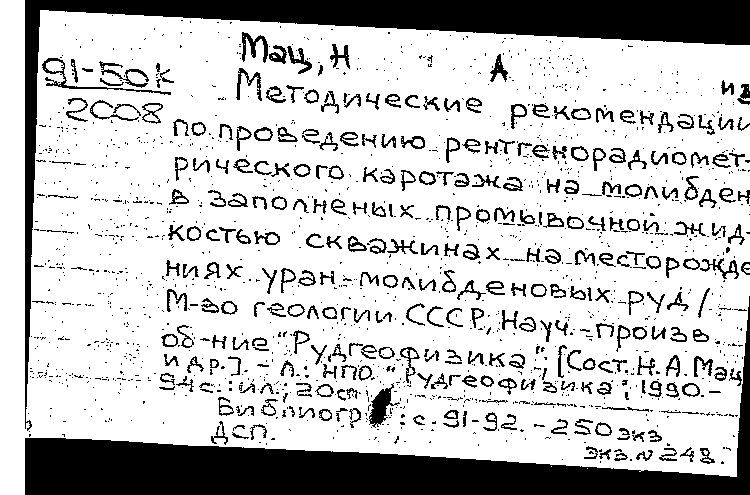 Мац, Н А
из
91-50к
2008
Методические рекомендации
по проведению рентгенорадиомет-
рического каротажа на молибден
в заполненых промывочной жид-
костью скважинах на месторожде
ниях уран-молибденовых руд /
М-во геологии СССР, Науч.-произв.
об-ние "Рудгеофизика"; [Сост. Н.А. Мац
и др.]. - Л.: НПО "Рудгеофизика", 1990.-
94с.: ил.; 20см
Библиогр : с. 91-92. - 250 экз.
ДСП.
экз. N 248.